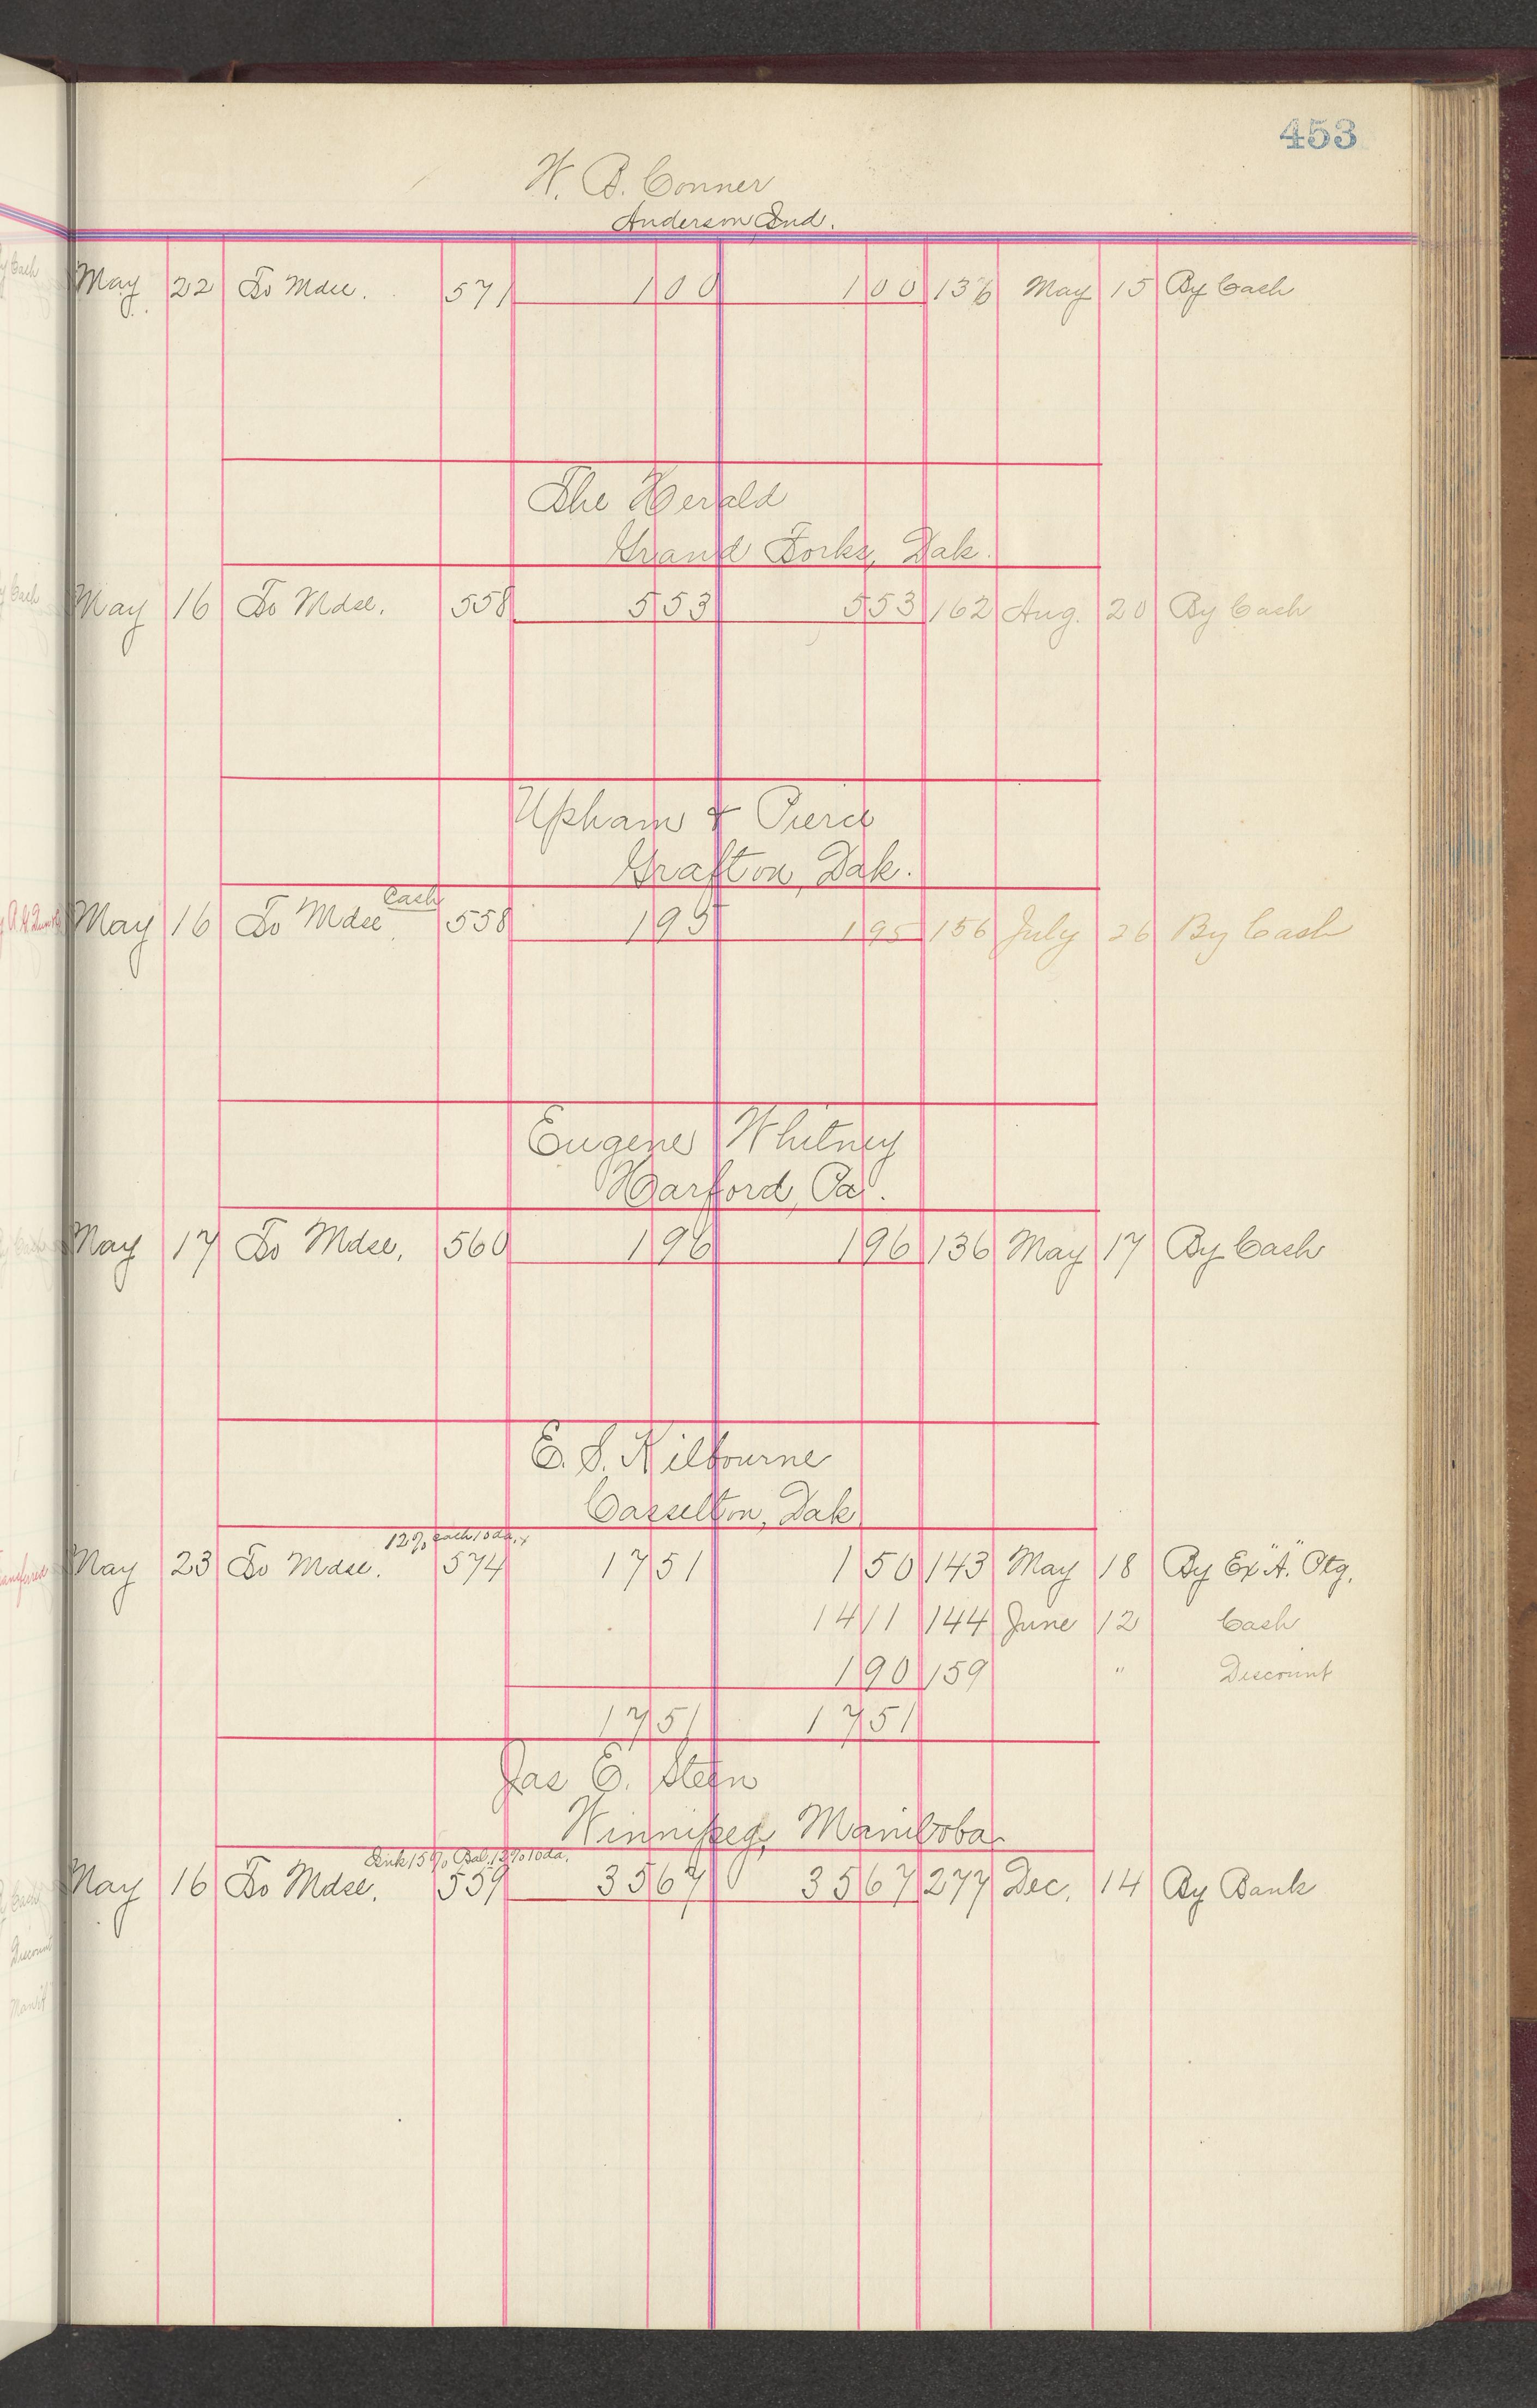 453
W. B. Conner
Anderson Ind.
May 22 To Mdse. 571 1 00 1 00 136 May 15 By Cash
The Herald
Grand Forks, Dak.
May 16 To Mdse. 558 5 53 5 53 162 Aug. 20 By Cash
Upham & Pierce
Grafton, Dak.
Cash
May 16 To Mdse 558 1 95 1 95 156 July 26 By Cash
Eugene Whitney
Harford, Pa.
May 17 To Mdse. 560 1 96 1 96 136 May 17 By Cash
E. S. Kilbourne
Casselton, Dak
12% cash 10 da.
May 23 To Mdse. 574 17 51 1 50 143 May 18 By Ex "A". Otg.
14 11 144 June 12 Cash
1 90 159 " Discount
17 51 17 51
Jas E. Steen
Winnipeg, Manitoba
15% Bal. 12% 10 da.
May 16 To Mdse. 559 35 67 35 67 277 Dec. 14 By Bank